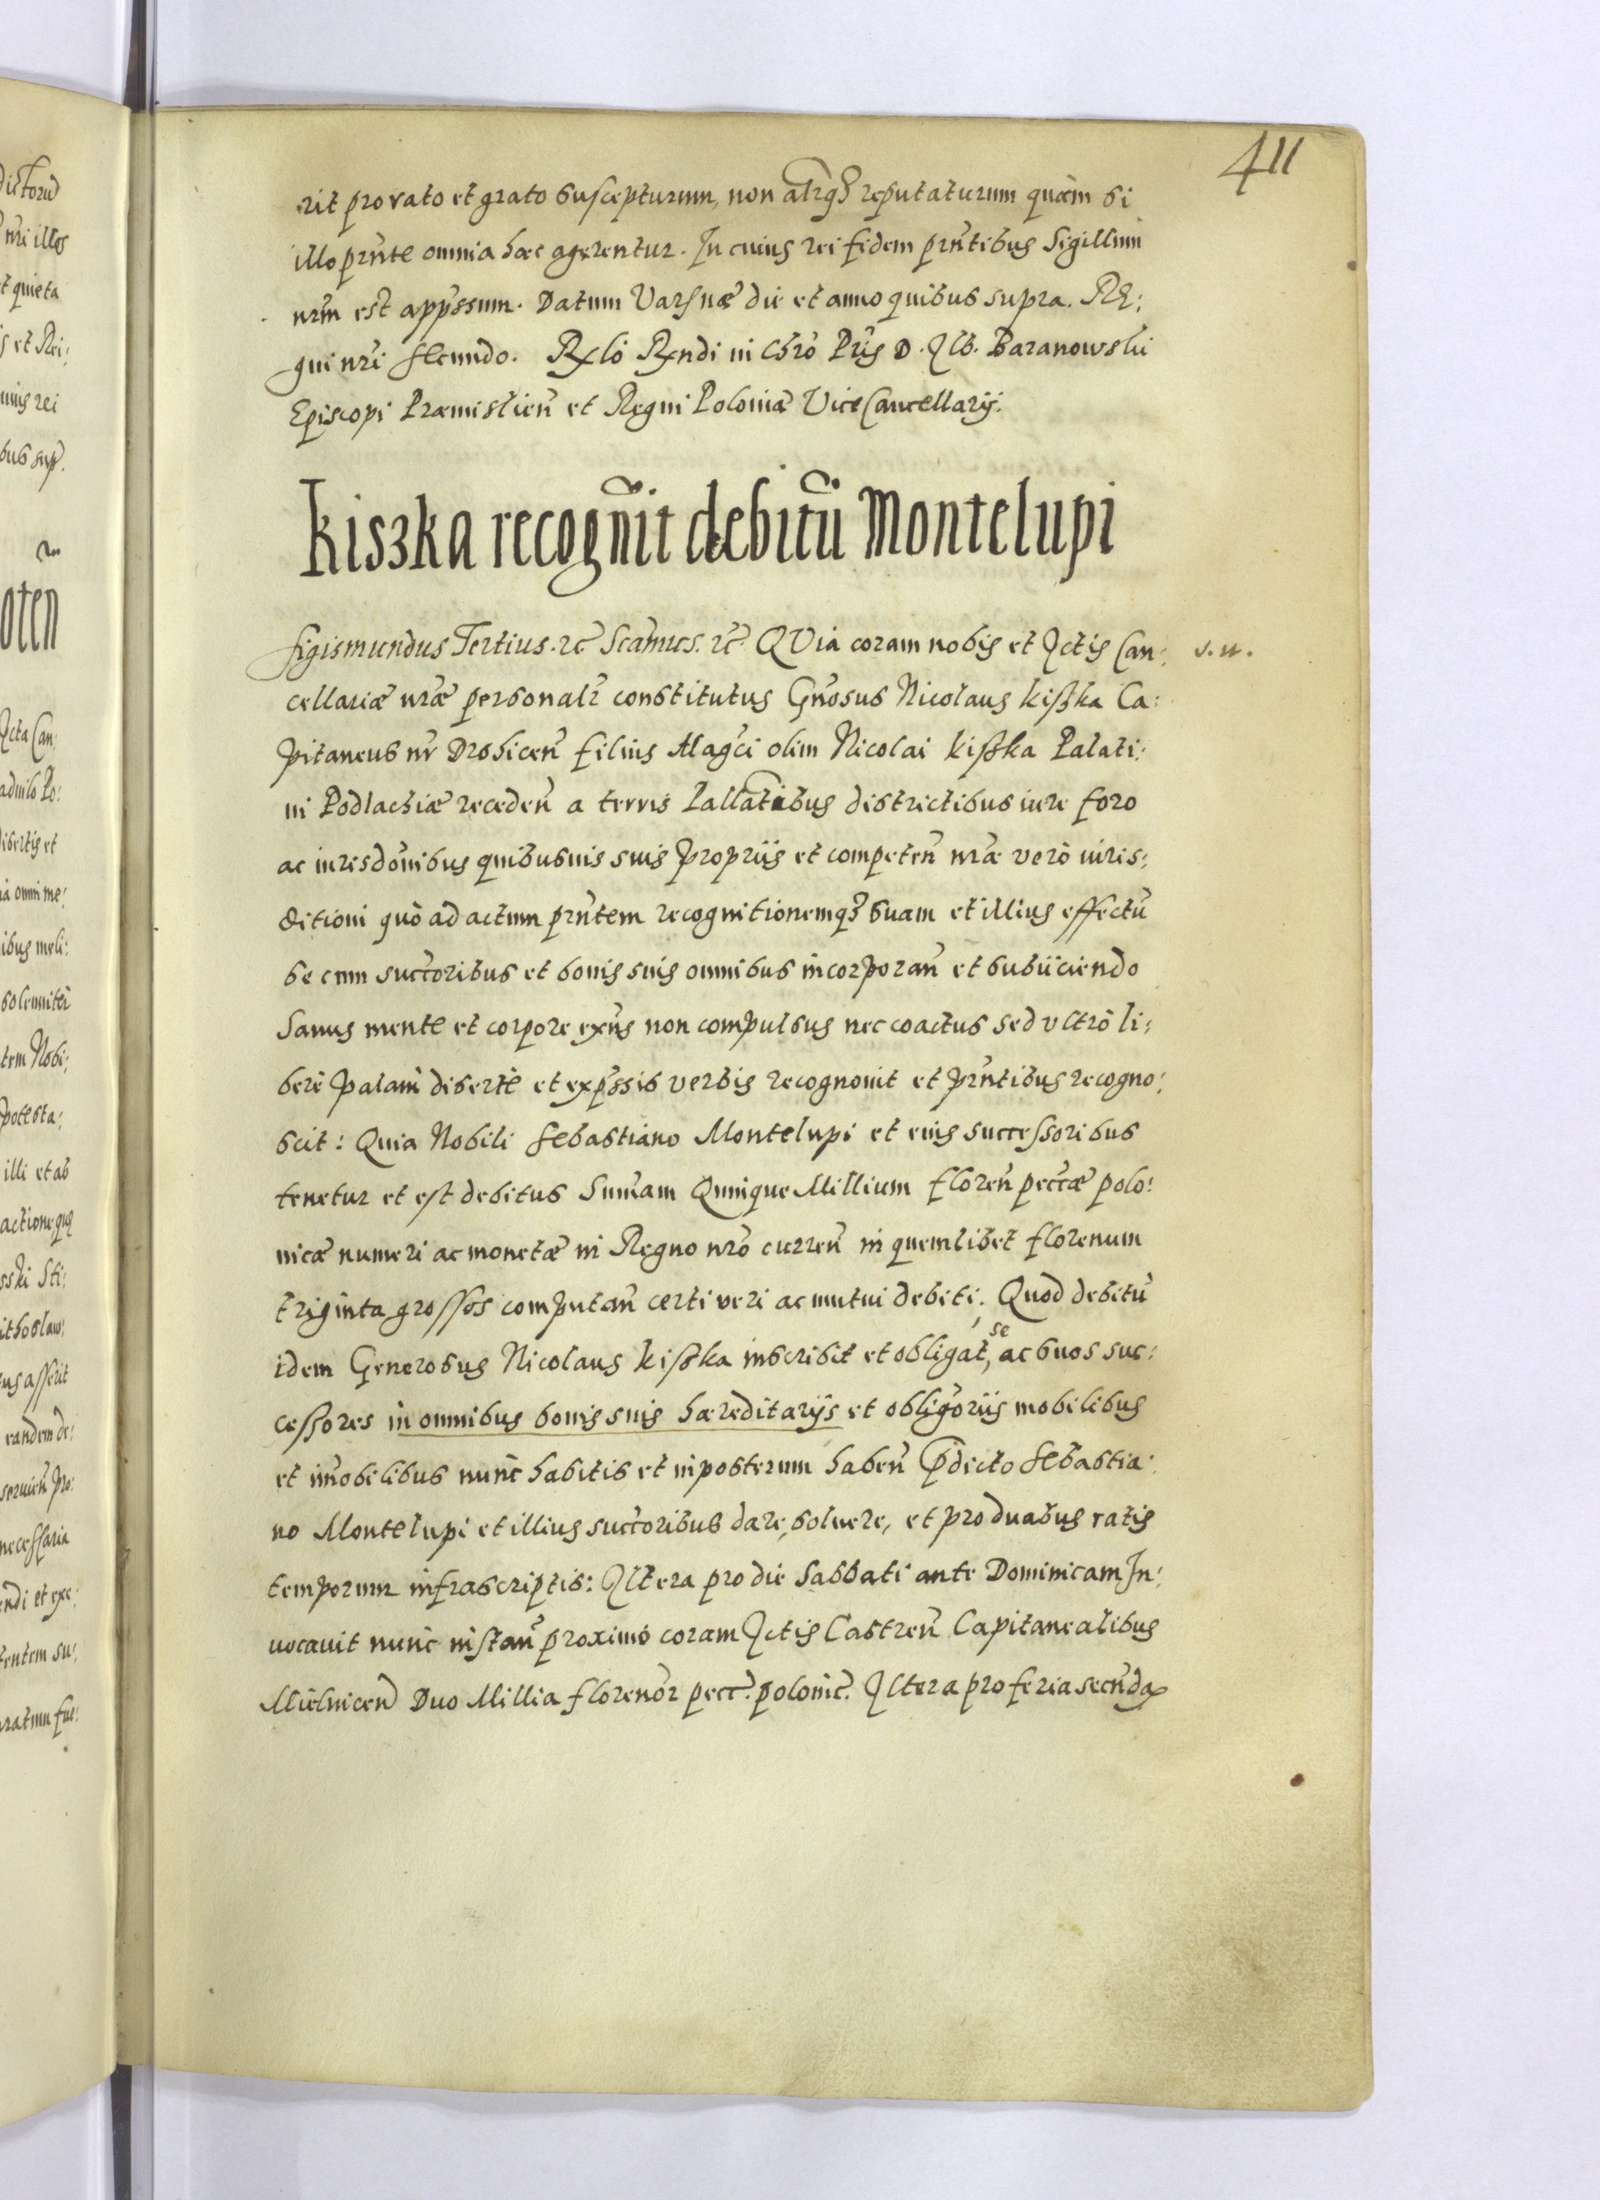 411
rit pro rato et grato suscepturum, non alrqz reputaturum quam si
illo prnte omnia haec agerentur. In cuius rei fidem prntibus Sigillum
nrm est appssum. Datum Varsnae die et anno quibus supra. Re:
gni nri secundo. Rlo Rndi in Chro Pris D. Alb. Baranowski
Episcopi Praemislien et Regni Poloniae Vice Cancellarij.
Kiszka recognit debitū Montelupi
Sigismundus Tertius. rc Scamus. rc QVia coram nobis et Actis Can:
v. n.
cellariae nrae personalr constitutus Gnosus Nicolaus Kiszka Ca:
pitaneus nr Drohicen filius Magci olim Nicolai Kiszka Palati:
ni Podlachiae receden a terris Pallatibus districtibus iure foro
ac iurisdonibus quibusuis suis proprijs et competen nrae verò iuris:
ditioni quò ad actum prntem recognitionemqz suam et illius effectū
se cum succoribus et bonis suis omnibus incorporan et subijciendo
Sanus mente et corpore exns non compulsus nec coactus sed vltrò li:
berè palam disertè et expssis verbis recognouit et prntibus recogno:
scit: Quia Nobili Sebastiano Montelupi et eius successoribus
tenetur et est debitus Sumam Quinque Millium floren peccae polo:
nicae numeri ac monetae in Regno nro curren in quemlibet florenum
triginta grossos computan certi veri ac mutui debiti; Quod debitū
idem Generosus Nicolaus Kiszka inscribit et obligat, se ac suos suc:
cessores in omnibus bonis suis haereditarijs et obligorijs mobilibus
et imobilibus nunc habitis et inposterum haben pdicto Sebastia:
no Montelupi et illius succoribus dare, soluere, et pro duabus ratis
temporum infrascriptis: Altera pro die Sabbati ante Dominicam In:
uocauit nunc instan proximo coram Actis Castren Capitanealibus
Mielnicen Duo Millia florenor pecc. polonic. Altera pro feria secnda